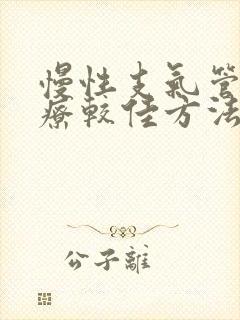 慢性支氣管
療較佳方法
公子離